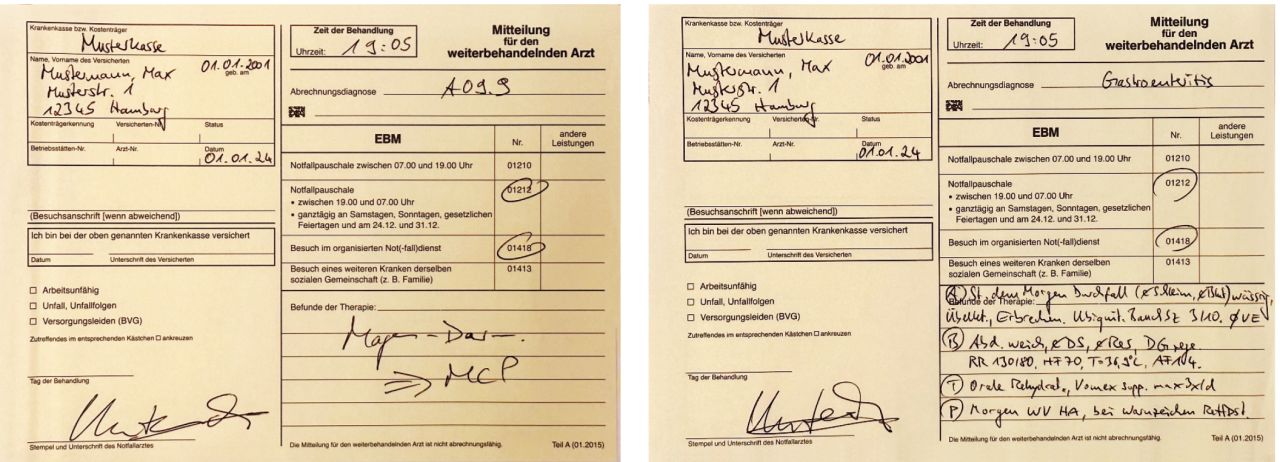 Krankenkasse bzw. Kostenträger
Musterkasse
Name, Vorname des Versicherten
Mustermann, Max 01.01.2001
geb. am
Musterstr. 1
12345 Hamburg
Kostenträgerkennung Versicherten-Nr. Status
Betriebsstätten-Nr. Arzt-Nr. Datum
01.01.24
(Besuchsanschrift [wenn abweichend])
Ich bin bei der oben genannten Krankenkasse versichert
Datum Unterschrift des Versicherten
Arbeitsunfähig
Unfall, Unfallfolgen
Versorgungsleiden (BVG)
Zutreffendes im entsprechenden Kästchen ☐ ankreuzen
Tag der Behandlung
Stempel und Unterschrift des Notfallarztes
Zeit der Behandlung
Uhrzeit: 19:05
Mitteilung
für den
weiterbehandelnden Arzt
Abrechnungsdiagnose A09.9
EBM Nr. andere
Leistungen
Notfallpauschale zwischen 07.00 und 19.00 Uhr 01210
Notfallpauschale 01212
• zwischen 19.00 und 07.00 Uhr
• ganztägig an Samstagen, Sonntagen, gesetzlichen
Feiertagen und am 24.12. und 31.12.
Besuch im organisierten Not(-fall)dienst 01418
Besuch eines weiteren Kranken derselben 01413
sozialen Gemeinschaft (z. B. Familie)
Befunde der Therapie:
Magen-Dar-.
⇒ MCP
Die Mitteilung für den weiterbehandelnden Arzt ist nicht abrechnungsfähig. Teil A (01.2015)
Krankenkasse bzw. Kostenträger
Musterkasse
Name, Vorname des Versicherten
Mustermann, Max 01.01.2001
geb. am
Musterstr. 1
12345 Hamburg
Kostenträgerkennung Versicherten-Nr. Status
Betriebsstätten-Nr. Arzt-Nr. Datum
01.01.24
(Besuchsanschrift [wenn abweichend])
Ich bin bei der oben genannten Krankenkasse versichert
Datum Unterschrift des Versicherten
Arbeitsunfähig
Unfall, Unfallfolgen
Versorgungsleiden (BVG)
Zutreffendes im entsprechenden Kästchen ☐ ankreuzen
Tag der Behandlung
Stempel und Unterschrift des Notfallarztes
Zeit der Behandlung
Uhrzeit: 19:05
Mitteilung
für den
weiterbehandelnden Arzt
Abrechnungsdiagnose Gastroenteritis
EBM Nr. andere
Leistungen
Notfallpauschale zwischen 07.00 und 19.00 Uhr 01210
Notfallpauschale 01212
• zwischen 19.00 und 07.00 Uhr
• ganztägig an Samstagen, Sonntagen, gesetzlichen
Feiertagen und am 24.12. und 31.12.
Besuch im organisierten Not(-fall)dienst 01418
Besuch eines weiteren Kranken derselben 01413
sozialen Gemeinschaft (z. B. Familie)
Ⓐ St. dem Morgen Durchfall (øSchleim, øBlut) wässrig,
Befunde der Therapie:
Übelkt., Erbrechen. Ubiquit. BauchSz 3/10. ØVE
Ⓑ Abd. weich, øDS, øRes, DG rege.
RR 130/80, HF 70, T=36,5°C, AF 14.
Ⓣ Orale Rehydrat., Vomex supp. max 3x/d
Ⓟ Morgen WV HA, bei Warnzeichen RettDst.
Die Mitteilung für den weiterbehandelnden Arzt ist nicht abrechnungsfähig. Teil A (01.2015)